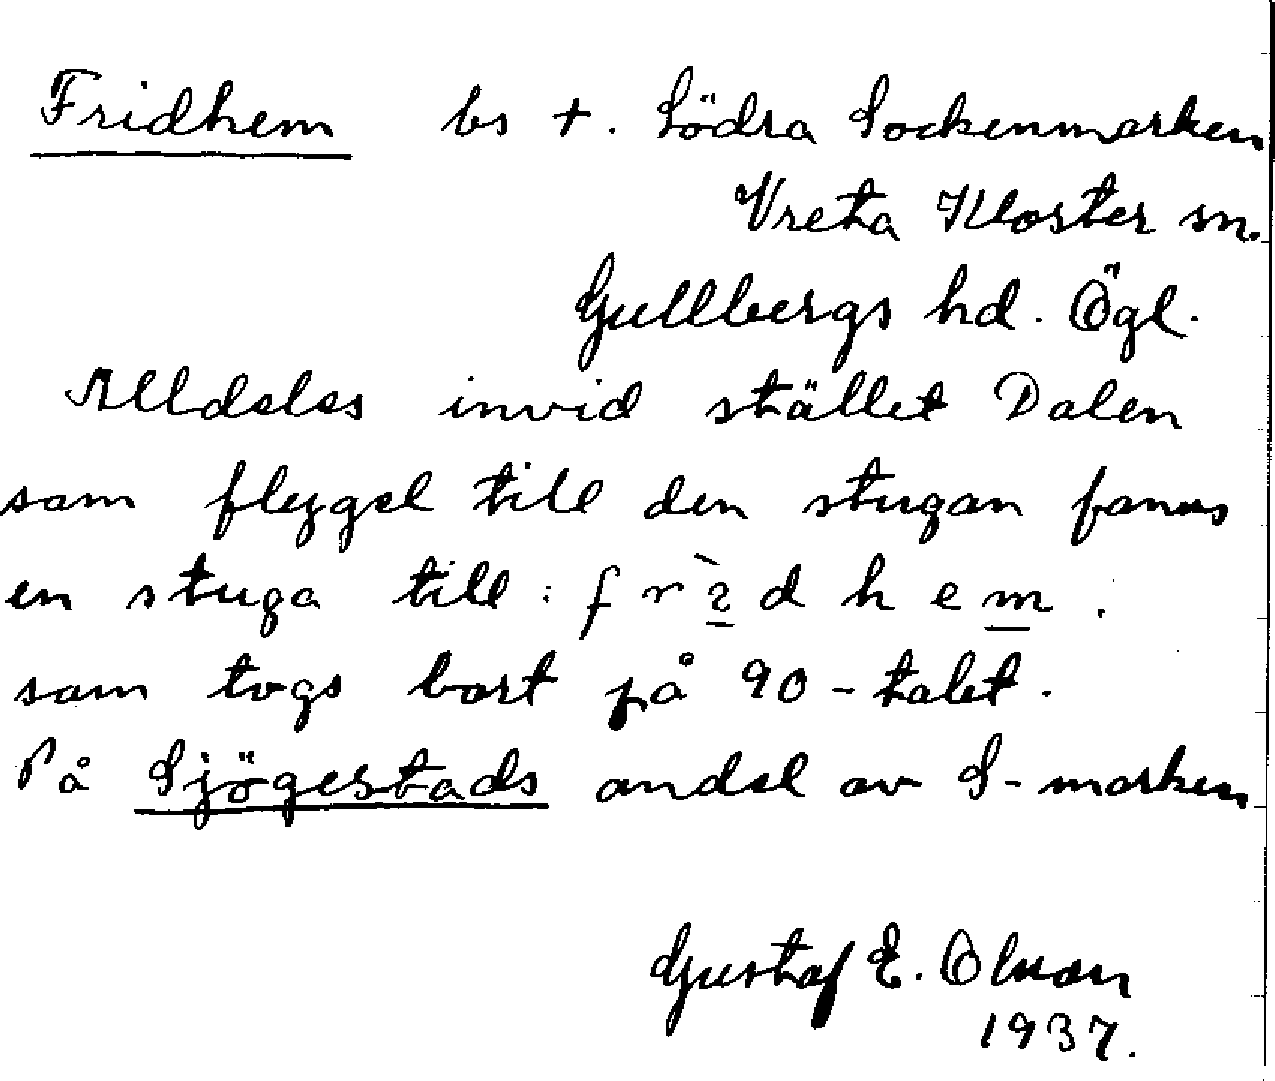 Fridhem bs +. Södra Sockenmarken
Vreta Kloster sn.
Gullbergs hd. Ögl.
Alldeles invid stället Dalen
som flygel till den stugan fanns
en stuga till: f r ì d h e m .
som togs bort på 90-talet.
På Sjögestads andel av S-marken
Gustaf E. Olsson
1937.